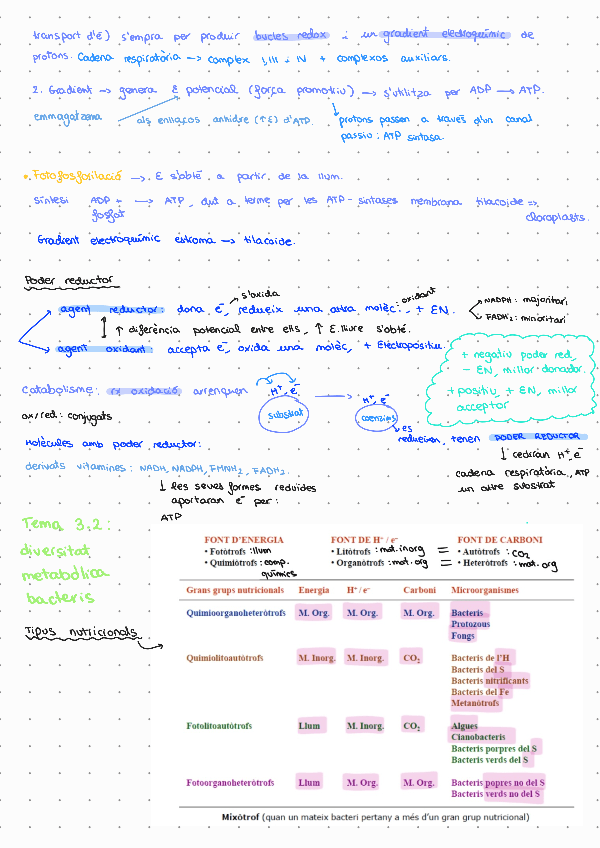 transport d'é) s'empra per produir bucles redox i un gradient electroquímic de
protons. Cadena respiratòria → complex I, III i IV + complexos auxiliars.
2. Gradient → genera E potencial (força promotriu) → s'utilitza per ADP → ATP.
emmagatzema als enllaços anhidre (↑E) d'ATP. protons passen a través d'un canal
passiu: ATP sintasa.
• Fotofosforilació → E s'obté a partir de la llum.
síntesi ADP + → ATP, dut a terme per les ATP-sintases membrana tilacoide ⇒
fosfat cloroplasts.
Gradient electroquímic estroma → tilacoide.
Poder reductor
s'oxida
oxidant
agent reductor: dona e⁻, redueix una altra molèc., + EN. NADPH: majoritari
FADH₂: minoritari
↑ diferència potencial entre ells, ↑ E. lliure s'obté.
agent oxidant: accepta e⁻, oxida una molèc, + Electropositiu.
+ negatiu poder red,
- EN, millor donador.
+ positiu, + EN, millor
acceptor
catabolisme: rx oxidació, arrenquen H⁺, e⁻ → H⁺ e⁻
ox/red: conjugats substrat coenzims
es
redueixen, tenen PODER REDUCTOR
Molècules amb poder reductor:
↓ cediran H⁺, e⁻
derivats vitamines: NADH, NADPH, FMNH₂, FADH₂. cadena respiratòria, ATP
un altre substrat
↓ Les seves formes reduïdes
aportaran e⁻ per:
ATP
Tema 3.2:
diversitat
metabòlica
bacteris
Tipus nutricionals
FONT D'ENERGIA FONT DE H⁺ / e⁻ FONT DE CARBONI
• Fotòtrofs : llum • Litòtrofs : mat. inorg = • Autòtrofs : CO₂
• Quimiòtrofs : comp. químics • Organòtrofs : mat. org = • Heteròtrofs : mat. org
Grans grups nutricionals Energia H⁺ / e⁻ Carboni Microorganismes
Quimioorganoheteròtrofs M. Org. M. Org. M. Org. Bacteris
Protozous
Fongs
Quimiolitoautòtrofs M. Inorg. M. Inorg. CO₂ Bacteris de l'H
Bacteris del S
Bacteris nitrificants
Bacteris del Fe
Metanòtrofs
Fotolitoautòtrofs Llum M. Inorg. CO₂ Algues
Cianobacteris
Bacteris porpres del S
Bacteris verds del S
Fotoorganoheteròtrofs Llum M. Org. M. Org. Bacteris popres no del S
Bacteris verds no del S
Mixòtrof (quan un mateix bacteri pertany a més d'un gran grup nutricional)